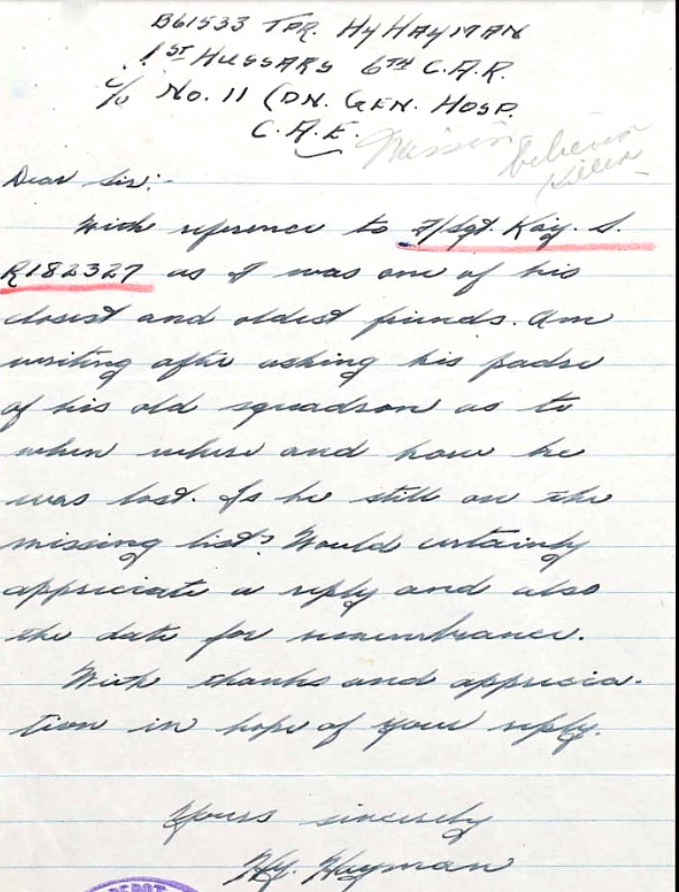 B61533 TPR. HY HAYMAN
1ST HUSSARS 6TH C.A.R.
c/o No. 11 CDN. GEN. HOSP.
C.A.E.
Missing believed
killed
Dear Sir:-
With reference to F/Sgt. Kay. S.
R182327 as I was one of his
closest and oldest friends. Am
writing after asking his padre
of his old squadron as to
when where and how he
was lost. Is he still on the
missing list? Would certainly
appreciate a reply and also
the date for remembrance.
With thanks and apprecia-
tion in hope of your reply.
Yours sincerely
Hy. Hayman
DEPOT